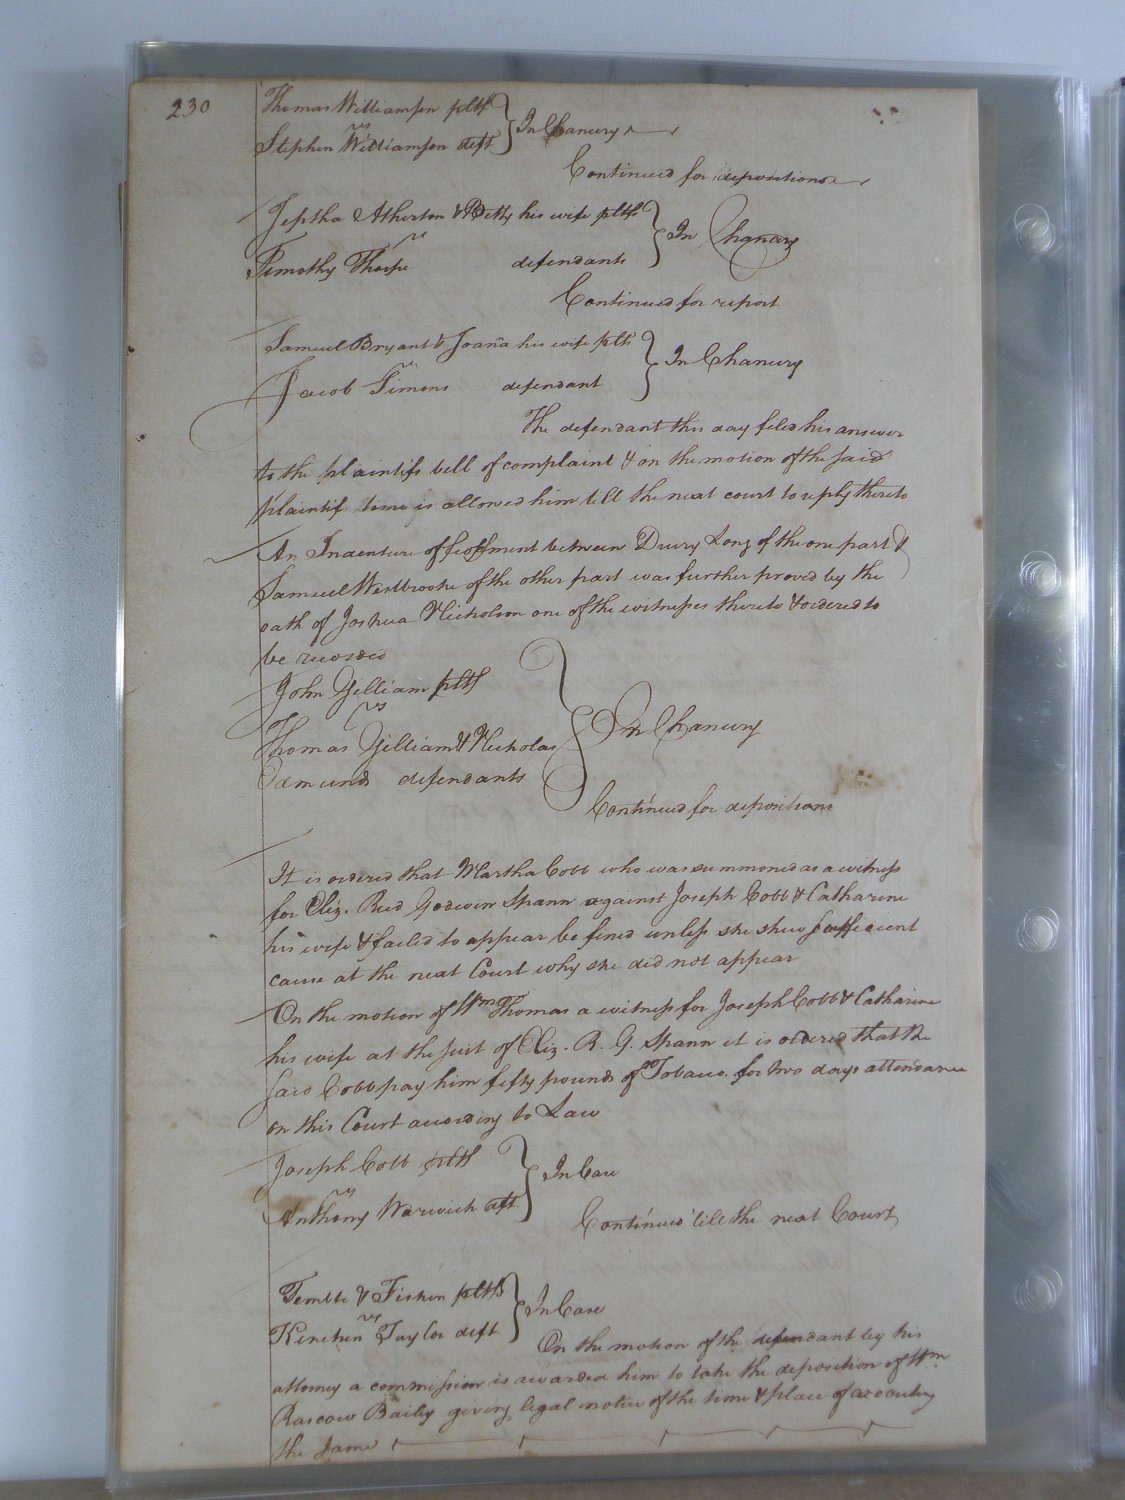 230
Thomas Williamson pltf
vs
Stephen Williamson deft
In Chancery
Continued for depositions
Jeptha Atherton & Betty his wife pltfs
vs
Timothy Thorpe defendants
In Chancery
Continued for report
Samuel Bryant & Joana his wife plts
vs
Jacob Simons defendant
In Chancery
The defendant this day filed his answer
to the plaintifs bill of complaint & on the motion of the said
plaintif time is allowed him till the next court to reply thereto
An Indenture of feoffment between Drury Long of the one part &
Samuel Westbrooke of the other part was further proved by the
oath of Joshua Nicholson one of the witnesses thereto & ordered to
be recorded
John Gilliam pltf
vs
Thomas Gilliam & Nicholas
Edmunds defendants
In Chancery
Continued for depositions
It is ordered that Martha Cobb who was summoned as a witness
for Eliz. Reed Godwin Spann against Joseph Cobb & Catharine
his wife & failed to appear be fined unless she shew sufficient
cause at the next Court why she did not appear
On the motion of Wm Thomas a witness for Joseph Cobb & Catharine
his wife at the suit of Eliz. R. G. Spann it is ordered that the
said Cobb pay him fifty pounds of Tobacco for two days attendance
on this Court according to Law
Joseph Cobb pltf
vs
Anthony Warwick dft
In Case
Continued till the next Court
Temble & Fisher pltfs
vs
Kinchen Taylor deft
In Case
On the motion of the defendant by his
attorney a commission is awarded him to take the deposition of Wm
Rascow Bailey giving legal notice of the time & place of executing
the same